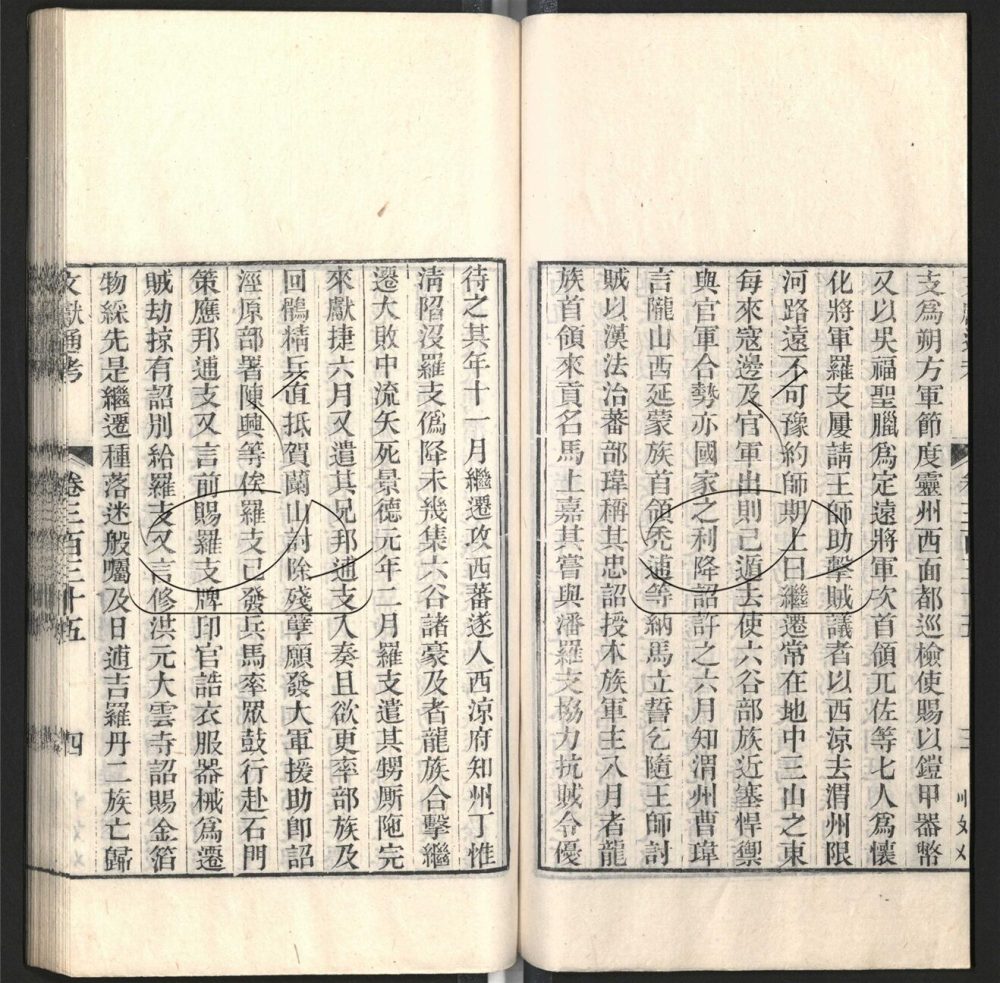 支爲朔方軍節度靈州西面都巡檢使賜以鎧甲器幣
又以吳福聖臘爲定遠將軍次首領兀佐等七人爲懷
化將軍羅支屢請王師助擊賊議者以西涼去渭州限
河路遠不可豫約師期上曰繼遷常在地中三山之東
每來寇邊及官軍出則已遁去使六谷部族近塞悍禦
與官軍合勢亦國家之利降詔許之六月知渭州曹瑋
言隴山西延蒙族首領禿逋等納馬立誓乞隨王師討
賊以漢法治蕃部瑋稱其忠詔授本族軍主八月者龍
族首領來貢名馬上嘉其嘗與潘羅支協力抗賊令優
待之其年十一月繼遷攻西蕃遂人西涼府知州丁惟
淸陷沒羅支僞降未幾集六谷諸豪及者龍族合擊繼
遷大敗中流矢死景德元年二月羅支遣其甥厮陁完
來獻捷六月又遣其兄邦逋支入奏且欲更率部族及
回鶻精兵直抵賀蘭山討除殘孽願發大軍援助卽詔
涇原部署陳興等俟羅支已發兵馬率眾鼓行赴石門
策應邦逋支又言前賜羅支牌印官誥衣服器械爲遷
賊劫掠有詔別給羅支又言修洪元大雲寺詔賜金箔
物綵先是繼遷種落迷般囑及日逋吉羅丹二族亡歸
文獻通考 卷三百三十五 四